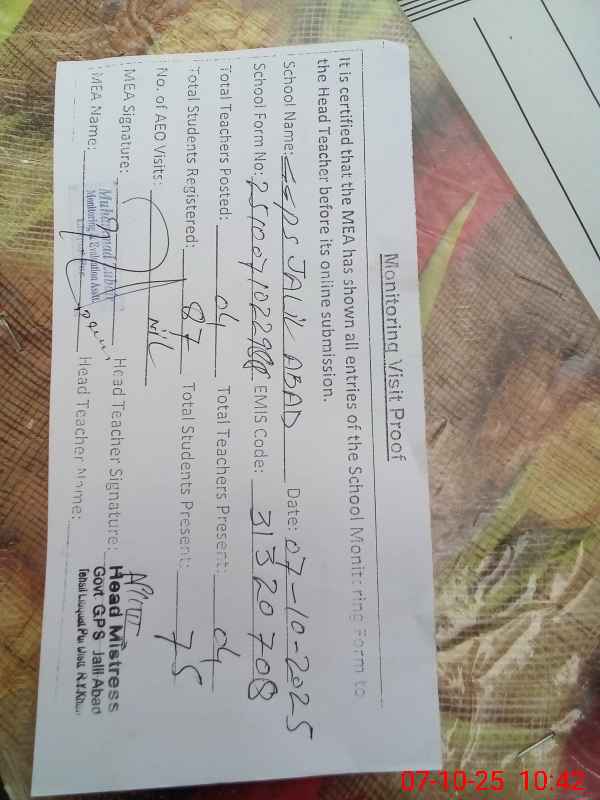 Monitoring Visit Proof
It is certified that the MEA has shown all entries of the School Monitoring Form to
the Head Teacher before its online submission.
School Name: GGPS JALIL ABAD Date: 07-10-2025
School Form No: EMIS Code: 31320708
Total Teachers Posted: 04 Total Teachers Present: 04
Total Students Registered: 87 Total Students Present: 75
No. of AEO Visits: Nil
MEA Signature: Head Teacher Signature:
MEA Name: Head Teacher Name:
Muhammad
Monitoring & Evaluation Asstt.
Head Mistress
Govt GPS Jalil Abad
Tehsil Liaquat Pur Distt. R.Y.Khan
07-10-25 10:42